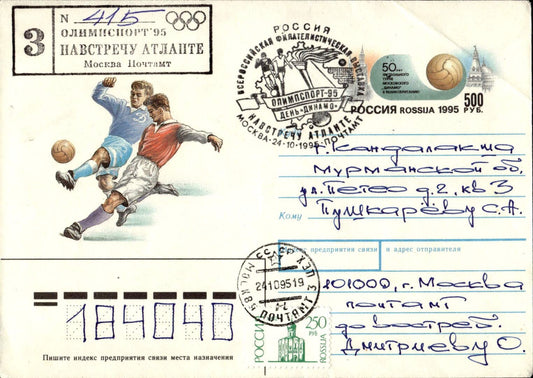 З
N 415
ОЛИМПСПОРТ'95
НАВСТРЕЧУ АТЛАНТЕ
Москва Почтамт
РОССИЯ
ВСЕРОССИЙСКАЯ ФИЛАТЕЛИСТИЧЕСКАЯ ВЫСТАВКА
ОЛИМПСПОРТ-95
ДЕНЬ «ДИНАМО»
НАВСТРЕЧУ АТЛАНТЕ
МОСКВА-24-10-1995-ПОЧТАМТ
50
МОСКОВСКОГО
"ДИНАМО"
В ВЕЛИКОБРИТАНИЮ
РОССИЯ ROSSIJA 1995 500
РУБ.
г. Кандалакша
Мурманской об.
д. 2, кв 3
Кому Пушкарёву С.А.
Индекс предприятия связи и адрес отправителя
101000, г. Москва
почтамт
до востреб.
Дмитриеву О.
СССР
МОСКВА
24109519
ПОЧТАМТ
184040
Пишите индекс предприятия связи места назначения
РОССИЯ
250
РУБ
ROSSIJA